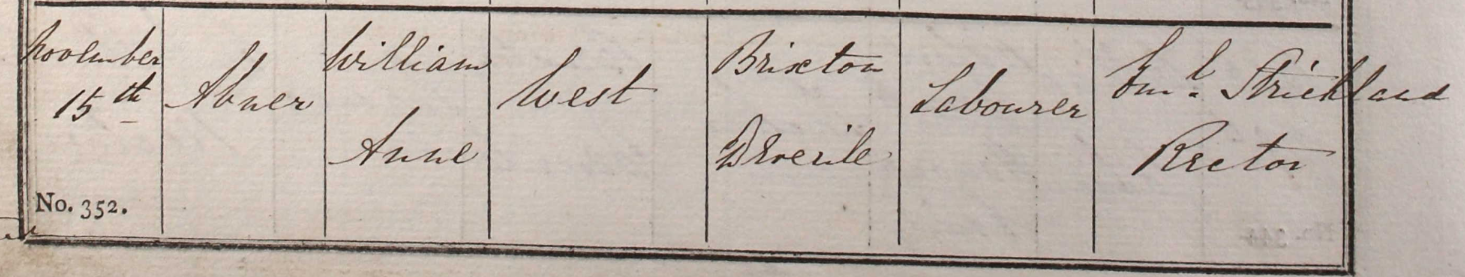 November
15th
No. 352.
Abner
William
Anne
West
Brixton
Deverile
Labourer
Strickland
Rector